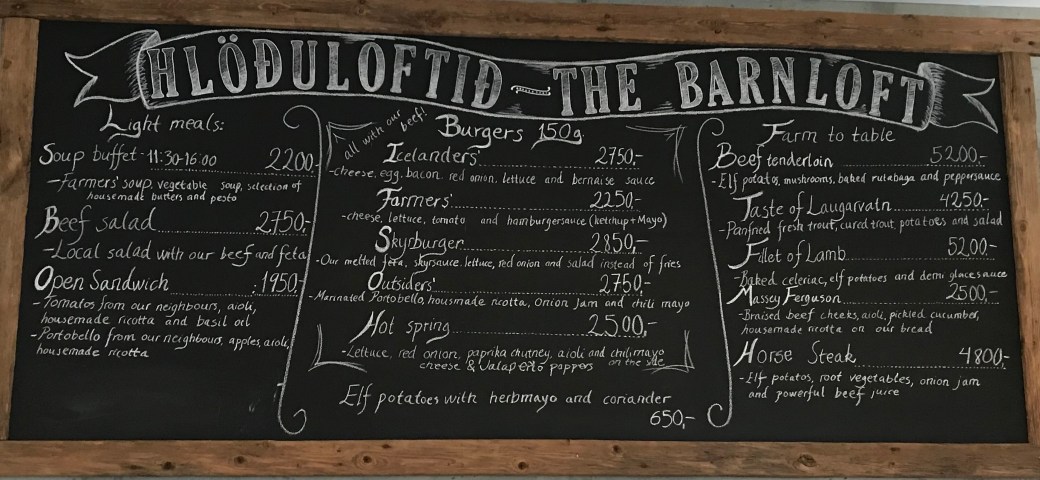 HLÖÐULOFTIÐ ~ THE BARNLOFT
Light meals:
Soup buffet - 11:30-16:00 2200.-
- Farmers' soup, vegetable soup, selection of
housemade butters and pesto
Beef salad 2750,-
- Local salad with our beef and feta
Open Sandwich 1950,-
- Tomatos from our neighbours, aioli,
housemade ricotta and basil oil
- Portobello from our neighbours, apples, aioli,
housmade ricotta
all with our
beef!
Burgers 150g
Icelanders' 2750,-
- cheese, egg, bacon, red onion, lettuce and bernaise sauce
Farmers' 2250,-
- cheese, lettuce, tomato and hamburgersauce (ketchup+Mayo)
Skyrburger 2850,-
- Our melted feta, skyrsauce, lettuce, red onion and salad instead of fries
Outsiders' 2750,-
- Marinated Portobello, housmade ricotta, onion Jam and chili mayo
Hot spring 2500,-
- Lettuce, red onion, paprika chutney, aioli and chilimayo
cheese & Jalapeño poppers on the side
Elf potatoes with herbmayo and coriander
650,-
Farm to table
Beef tenderloin 5200.-
- Elf potatos, mushrooms, baked rutabaga and peppersauce
Taste of Laugarvatn 4250,-
- Panfried fresh trout, cured trout, potatoes and salad
Fillet of Lamb 5200.-
- Baked celeriac, elf potatoes and demi glace sauce
Massey Ferguson 2500,-
- Braised beef cheeks, aioli, pickled cucumber,
housemade ricotta on our bread
Horse Steak 4800,-
- Elf potatos, root vegetables, onion jam
and powerful beef juice